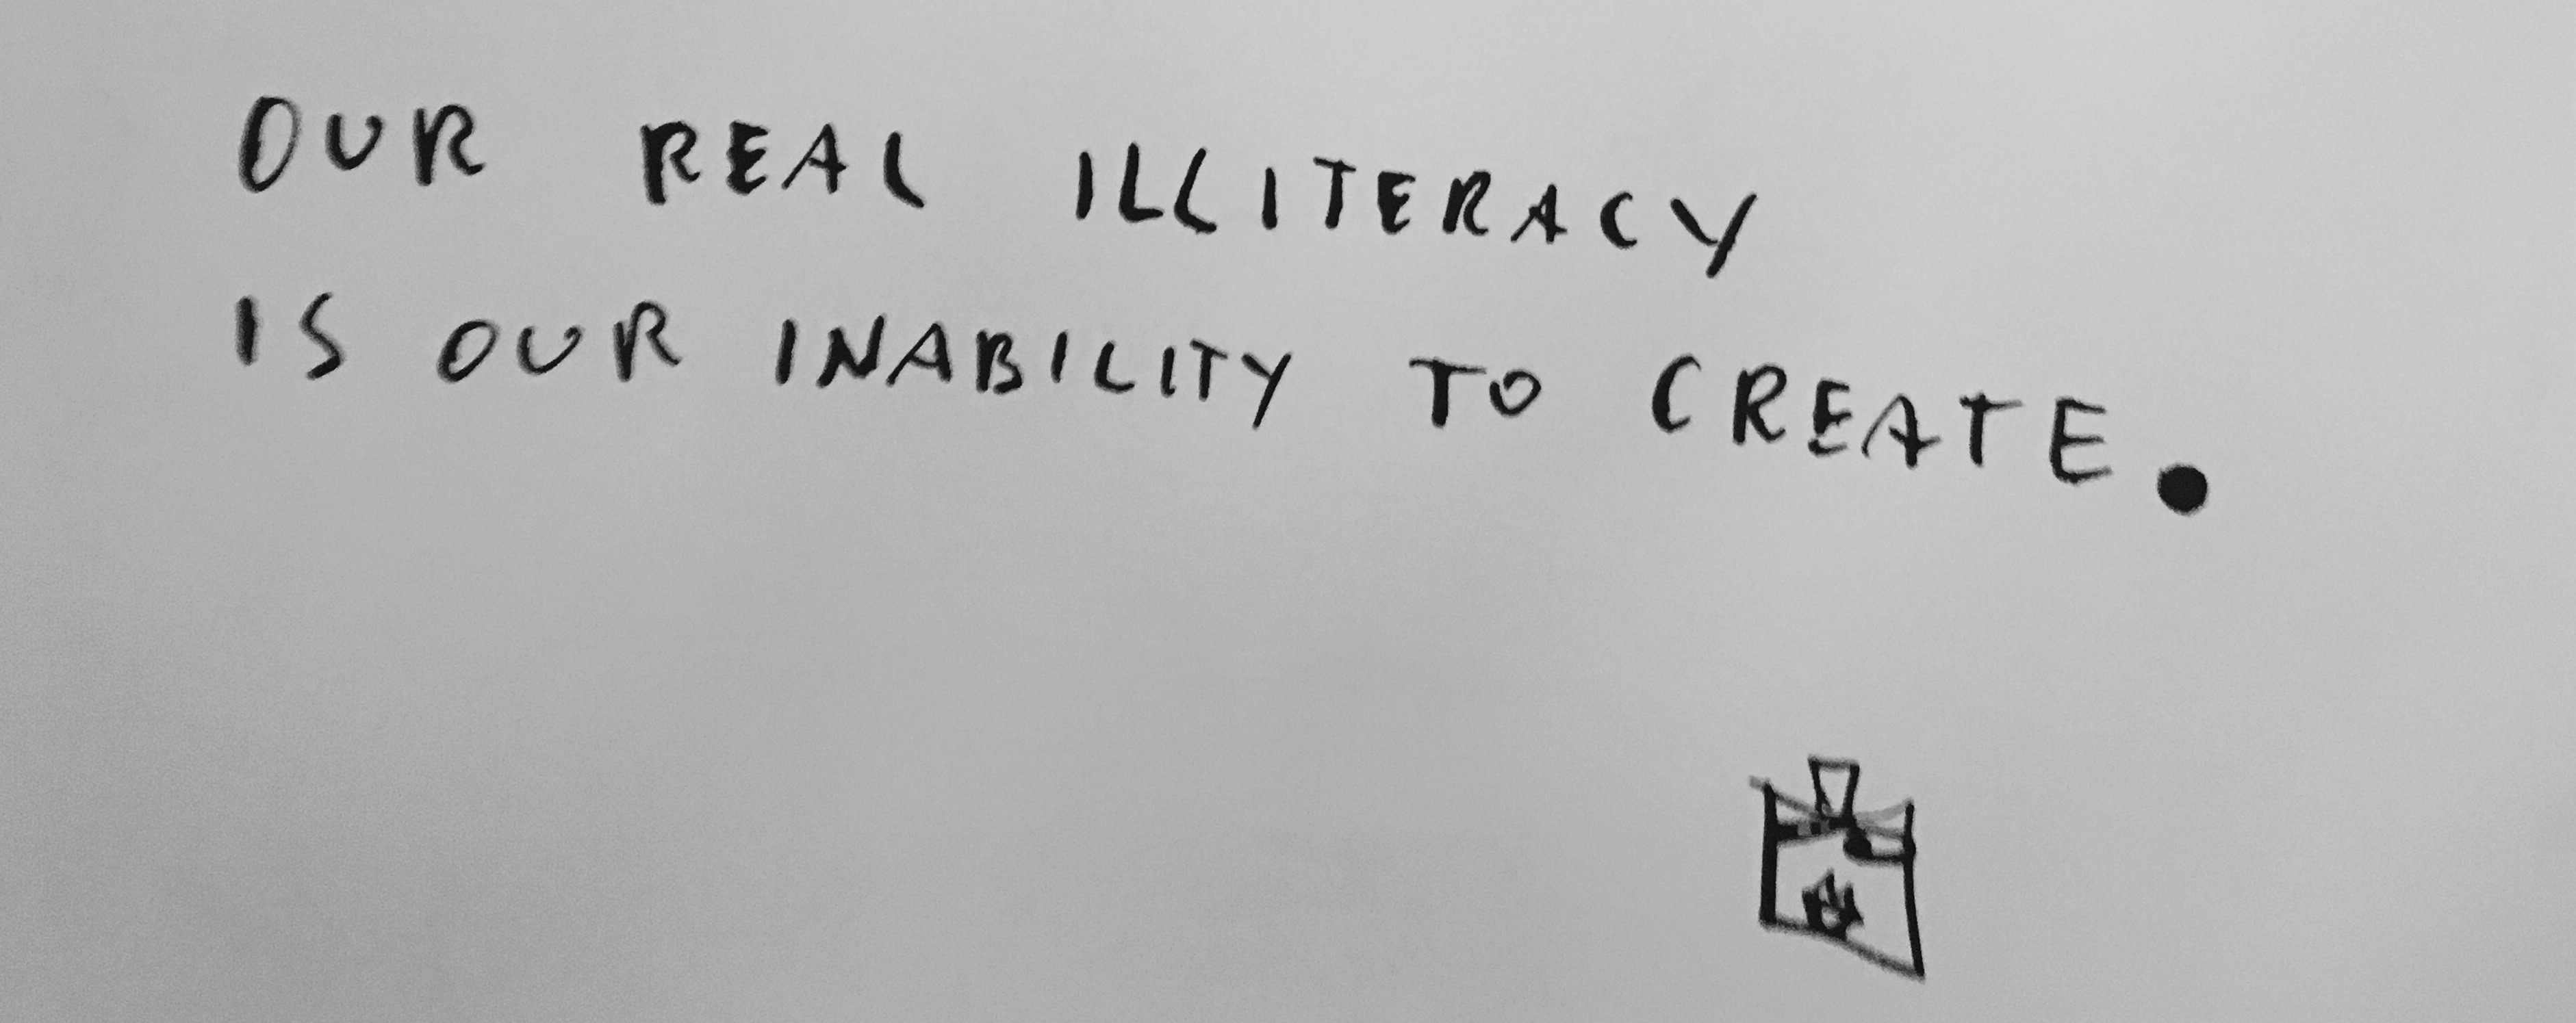 OUR REAL ILLITERACY
IS OUR INABILITY TO CREATE.